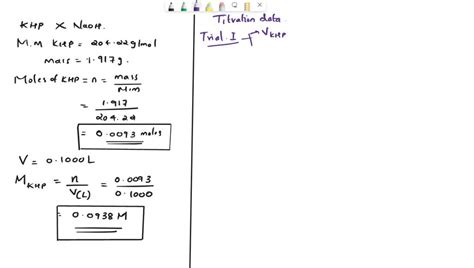 KHP X NaOH.
M.m KHP = 204.22g/mol
mass = 1.917g.
Moles of KHP = n = mass
M.m
= 1.917
204.22
= 0.0093 moles
V = 0.1000L
M KHP = n = 0.0093
V(L) 0.1000
= 0.0938 M
Titration data
Trial.I V KHP